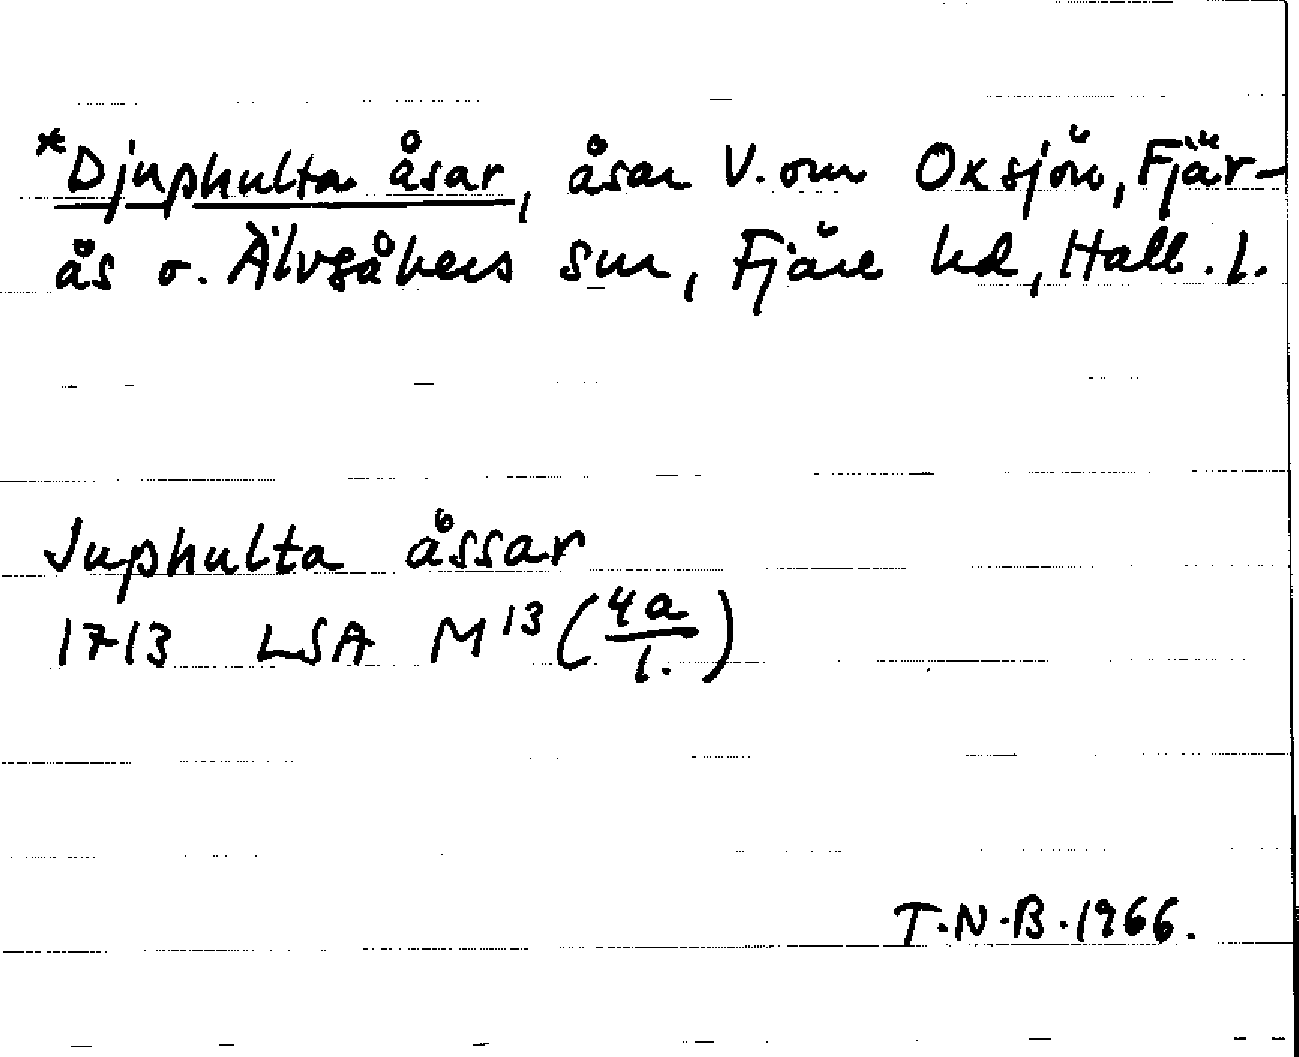 *Djuphulta åsar, åsar V. om Oxsjön, Fjär-
ås o. Älvsåkers snr, Fjäre hd, Hall. l.
Juphulta åssar
1713 LSA M 13 (4a/1.)
T.N.B. 1966.